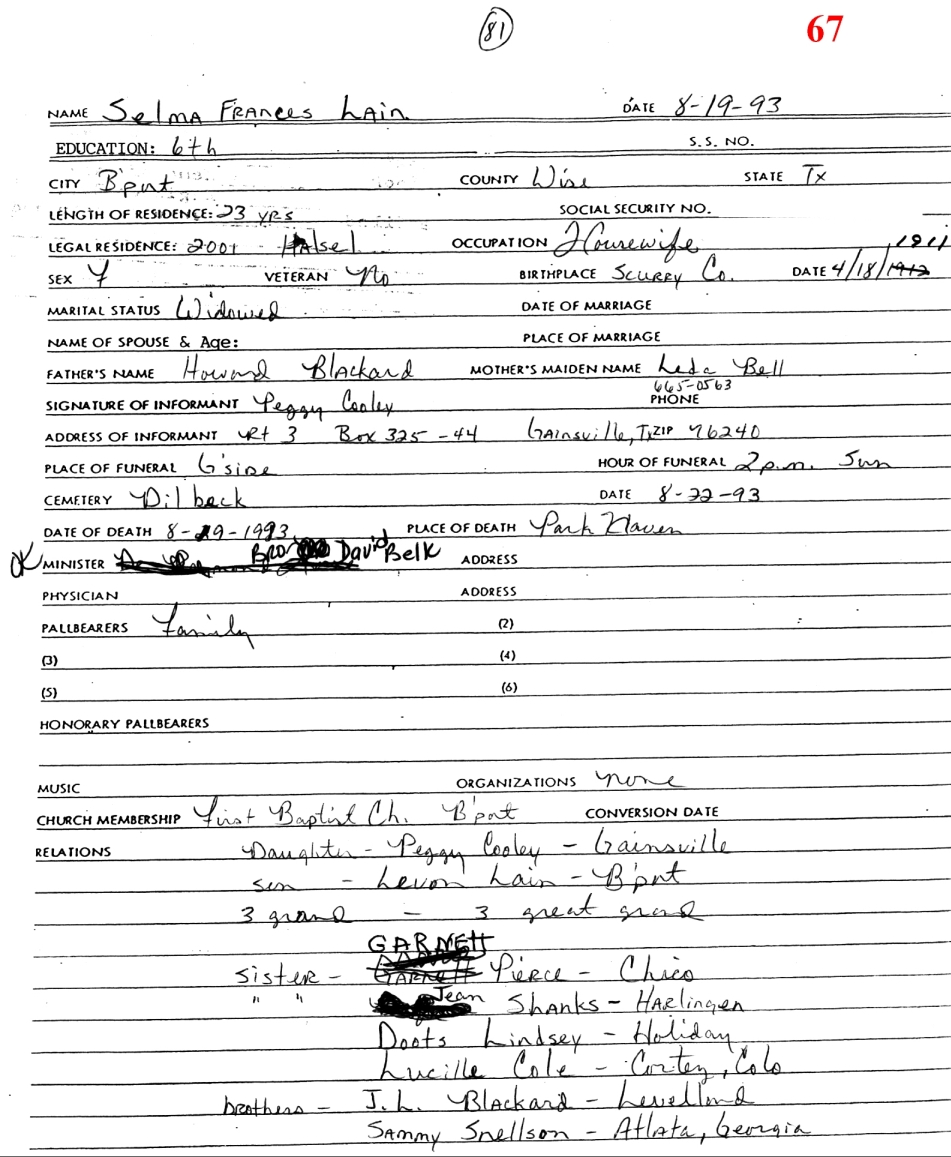 81 67
NAME Selma Frances Lain DATE 8-19-93
EDUCATION: 6th S.S. NO.
CITY B'port COUNTY Wise STATE Tx
LENGTH OF RESIDENCE: 23 yrs SOCIAL SECURITY NO.
LEGAL RESIDENCE: 2001 Halsel OCCUPATION Housewife 1911
SEX F VETERAN No BIRTHPLACE Scurry Co. DATE 4/18/1912
MARITAL STATUS Widowed DATE OF MARRIAGE
NAME OF SPOUSE & Age: PLACE OF MARRIAGE
FATHER'S NAME Howard Blackard MOTHER'S MAIDEN NAME Leda Bell
665-0563
SIGNATURE OF INFORMANT Peggy Cooley PHONE
ADDRESS OF INFORMANT Rt 3 Box 325-44 Gainsville, Tx ZIP 76240
PLACE OF FUNERAL G'side HOUR OF FUNERAL 2 p.m. Sun
CEMETERY Dilbeck DATE 8-22-93
DATE OF DEATH 8-19-1993 PLACE OF DEATH Park Haven
OK MINISTER Bro David Belk ADDRESS
PHYSICIAN ADDRESS
PALLBEARERS Family (2)
(3) (4)
(5) (6)
HONORARY PALLBEARERS
MUSIC ORGANIZATIONS none
CHURCH MEMBERSHIP First Baptist Ch. B'port CONVERSION DATE
RELATIONS Daughter - Peggy Cooley - Gainsville
son - Levon Lain - B'port
3 grand - 3 great grand
GARNETT
sister - Garnett Pierce - Chico
" " Jean Shanks - Harlingen
Doots Lindsey - Holiday
Lucille Cole - Cortez, Colo
brothers - J.L. Blackard - Levelland
Sammy Snellson - Atlata, Georgia